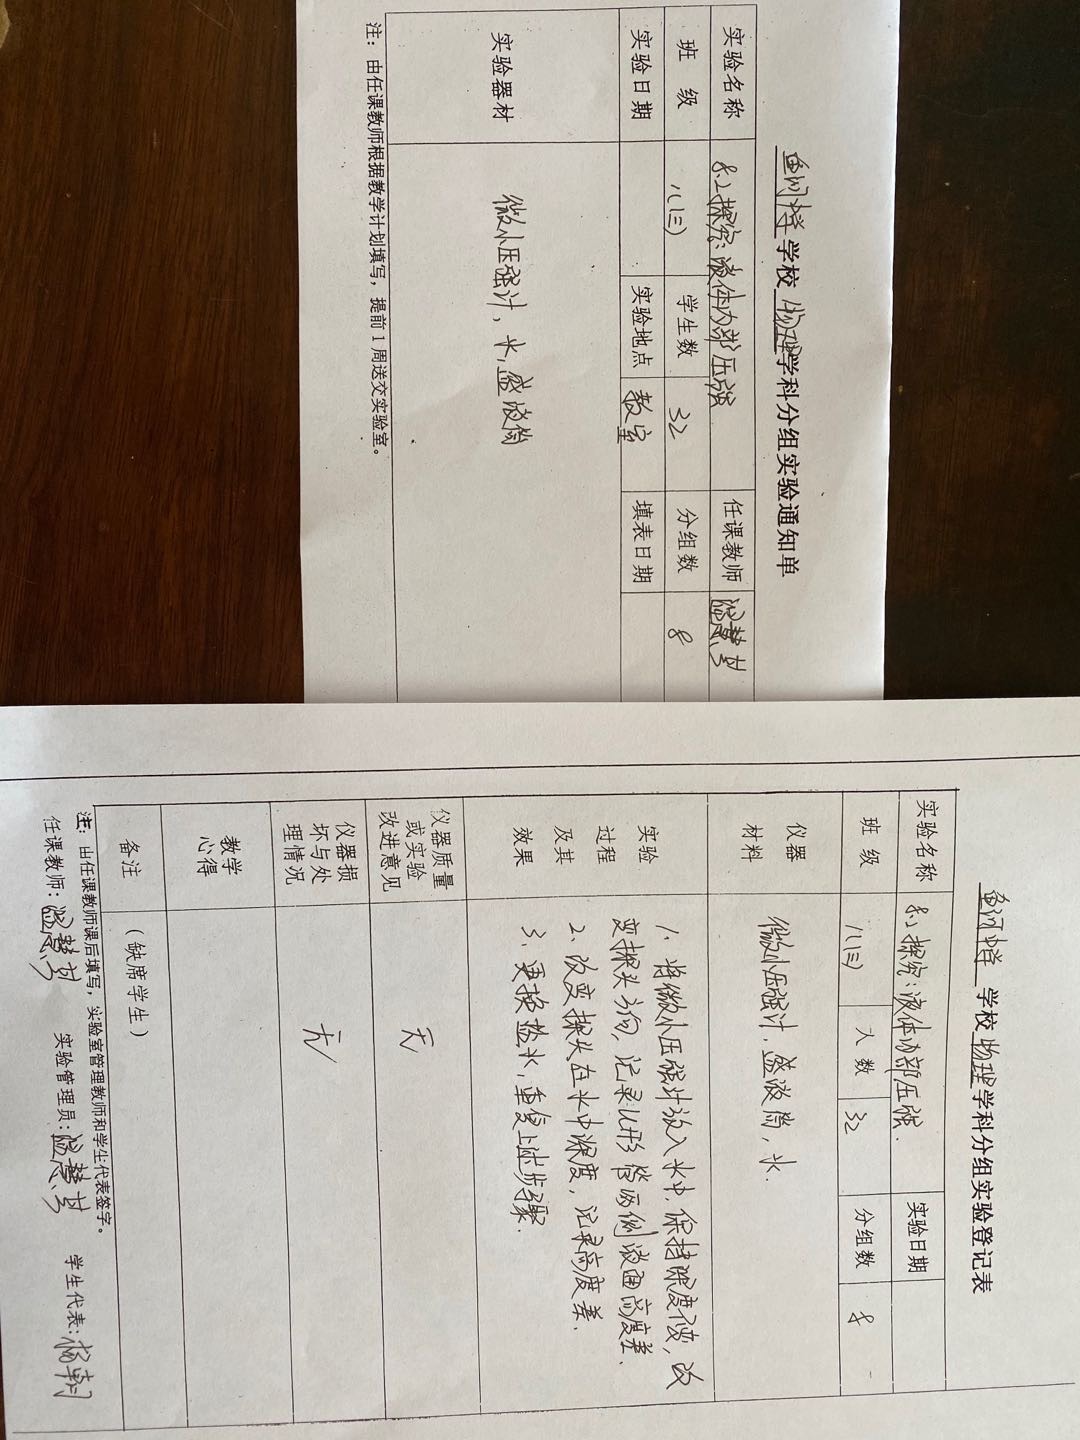 鱼河中学 学校 物理 学科分组实验通知单
实验名称 8.2 探究:液体内部压强 任课教师
班 级 八(三) 学生数 32 分组数 8
实验日期 实验地点 教室 填表日期
实验器材 微小压强计, 水, 盛液筒
注:由任课教师根据教学计划填写,提前1周送交实验室。
鱼河中学 学校 物理 学科分组实验登记表
实验名称 8.2 探究:液体内部压强. 实验日期
班 级 八(三) 人 数 32 分组数 8
仪器材料 微小压强计, 盛液筒, 水.
实验过程及其效果
1. 将微小压强计放入水中, 保持深度不变, 改
变探头方向, 记录U形管两侧液面高度差.
2. 改变探头在水中深度, 记录高度差.
3. 更换盐水, 重复上述步骤.
仪器质量或实验改进意见 无
仪器损坏与处理情况 无
教学心得
备注 (缺席学生)
注:由任课教师课后填写,实验室管理教师和学生代表签字。
任课教师: 实验管理员: 学生代表: